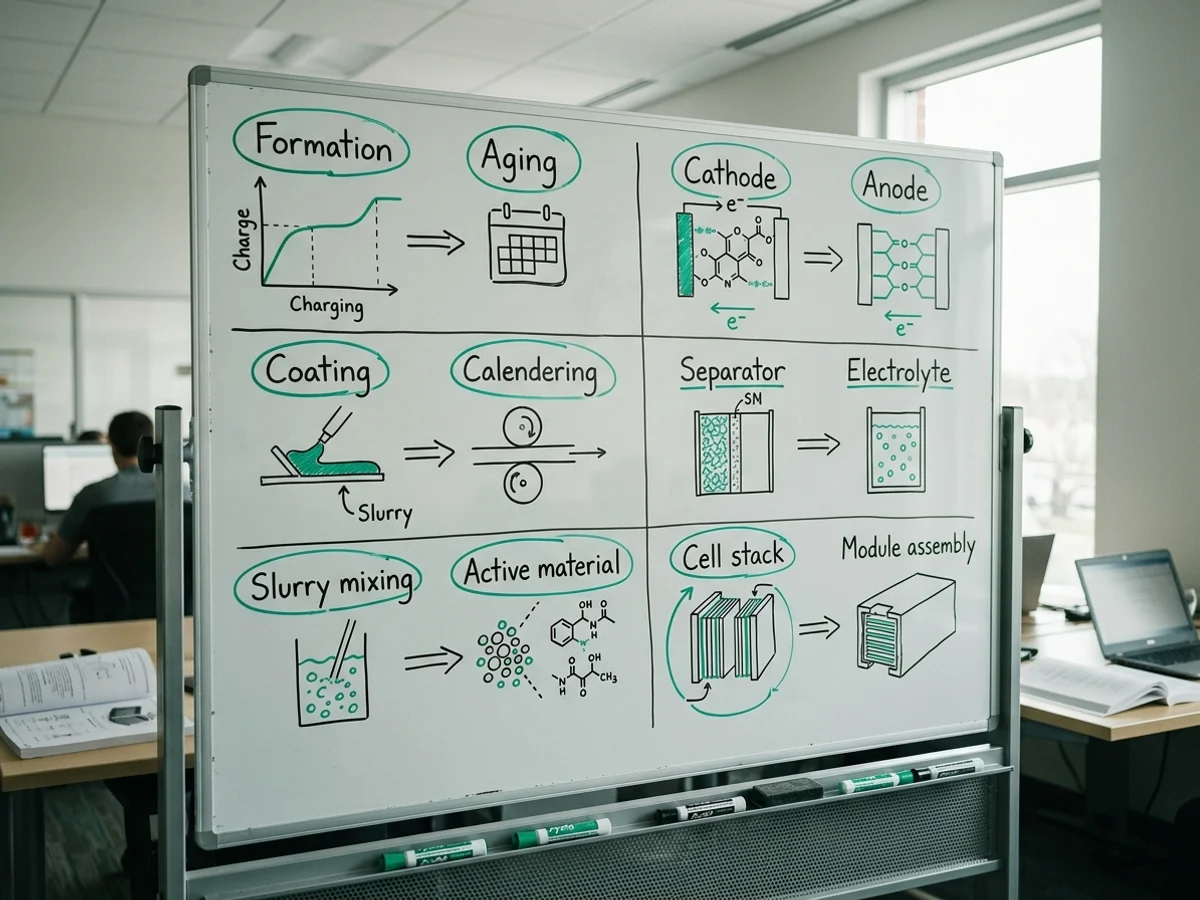 Formation
Aging
Charge
Charging
Cathode
Anode
e⁻
e⁻
e⁻
Coating
Calendering
Slurry
Separator
Electrolyte
SN
Slurry mixing
Active material
OH
O
N
H
OH
CH₃
N
H
O
O
Cell stack
Module assembly